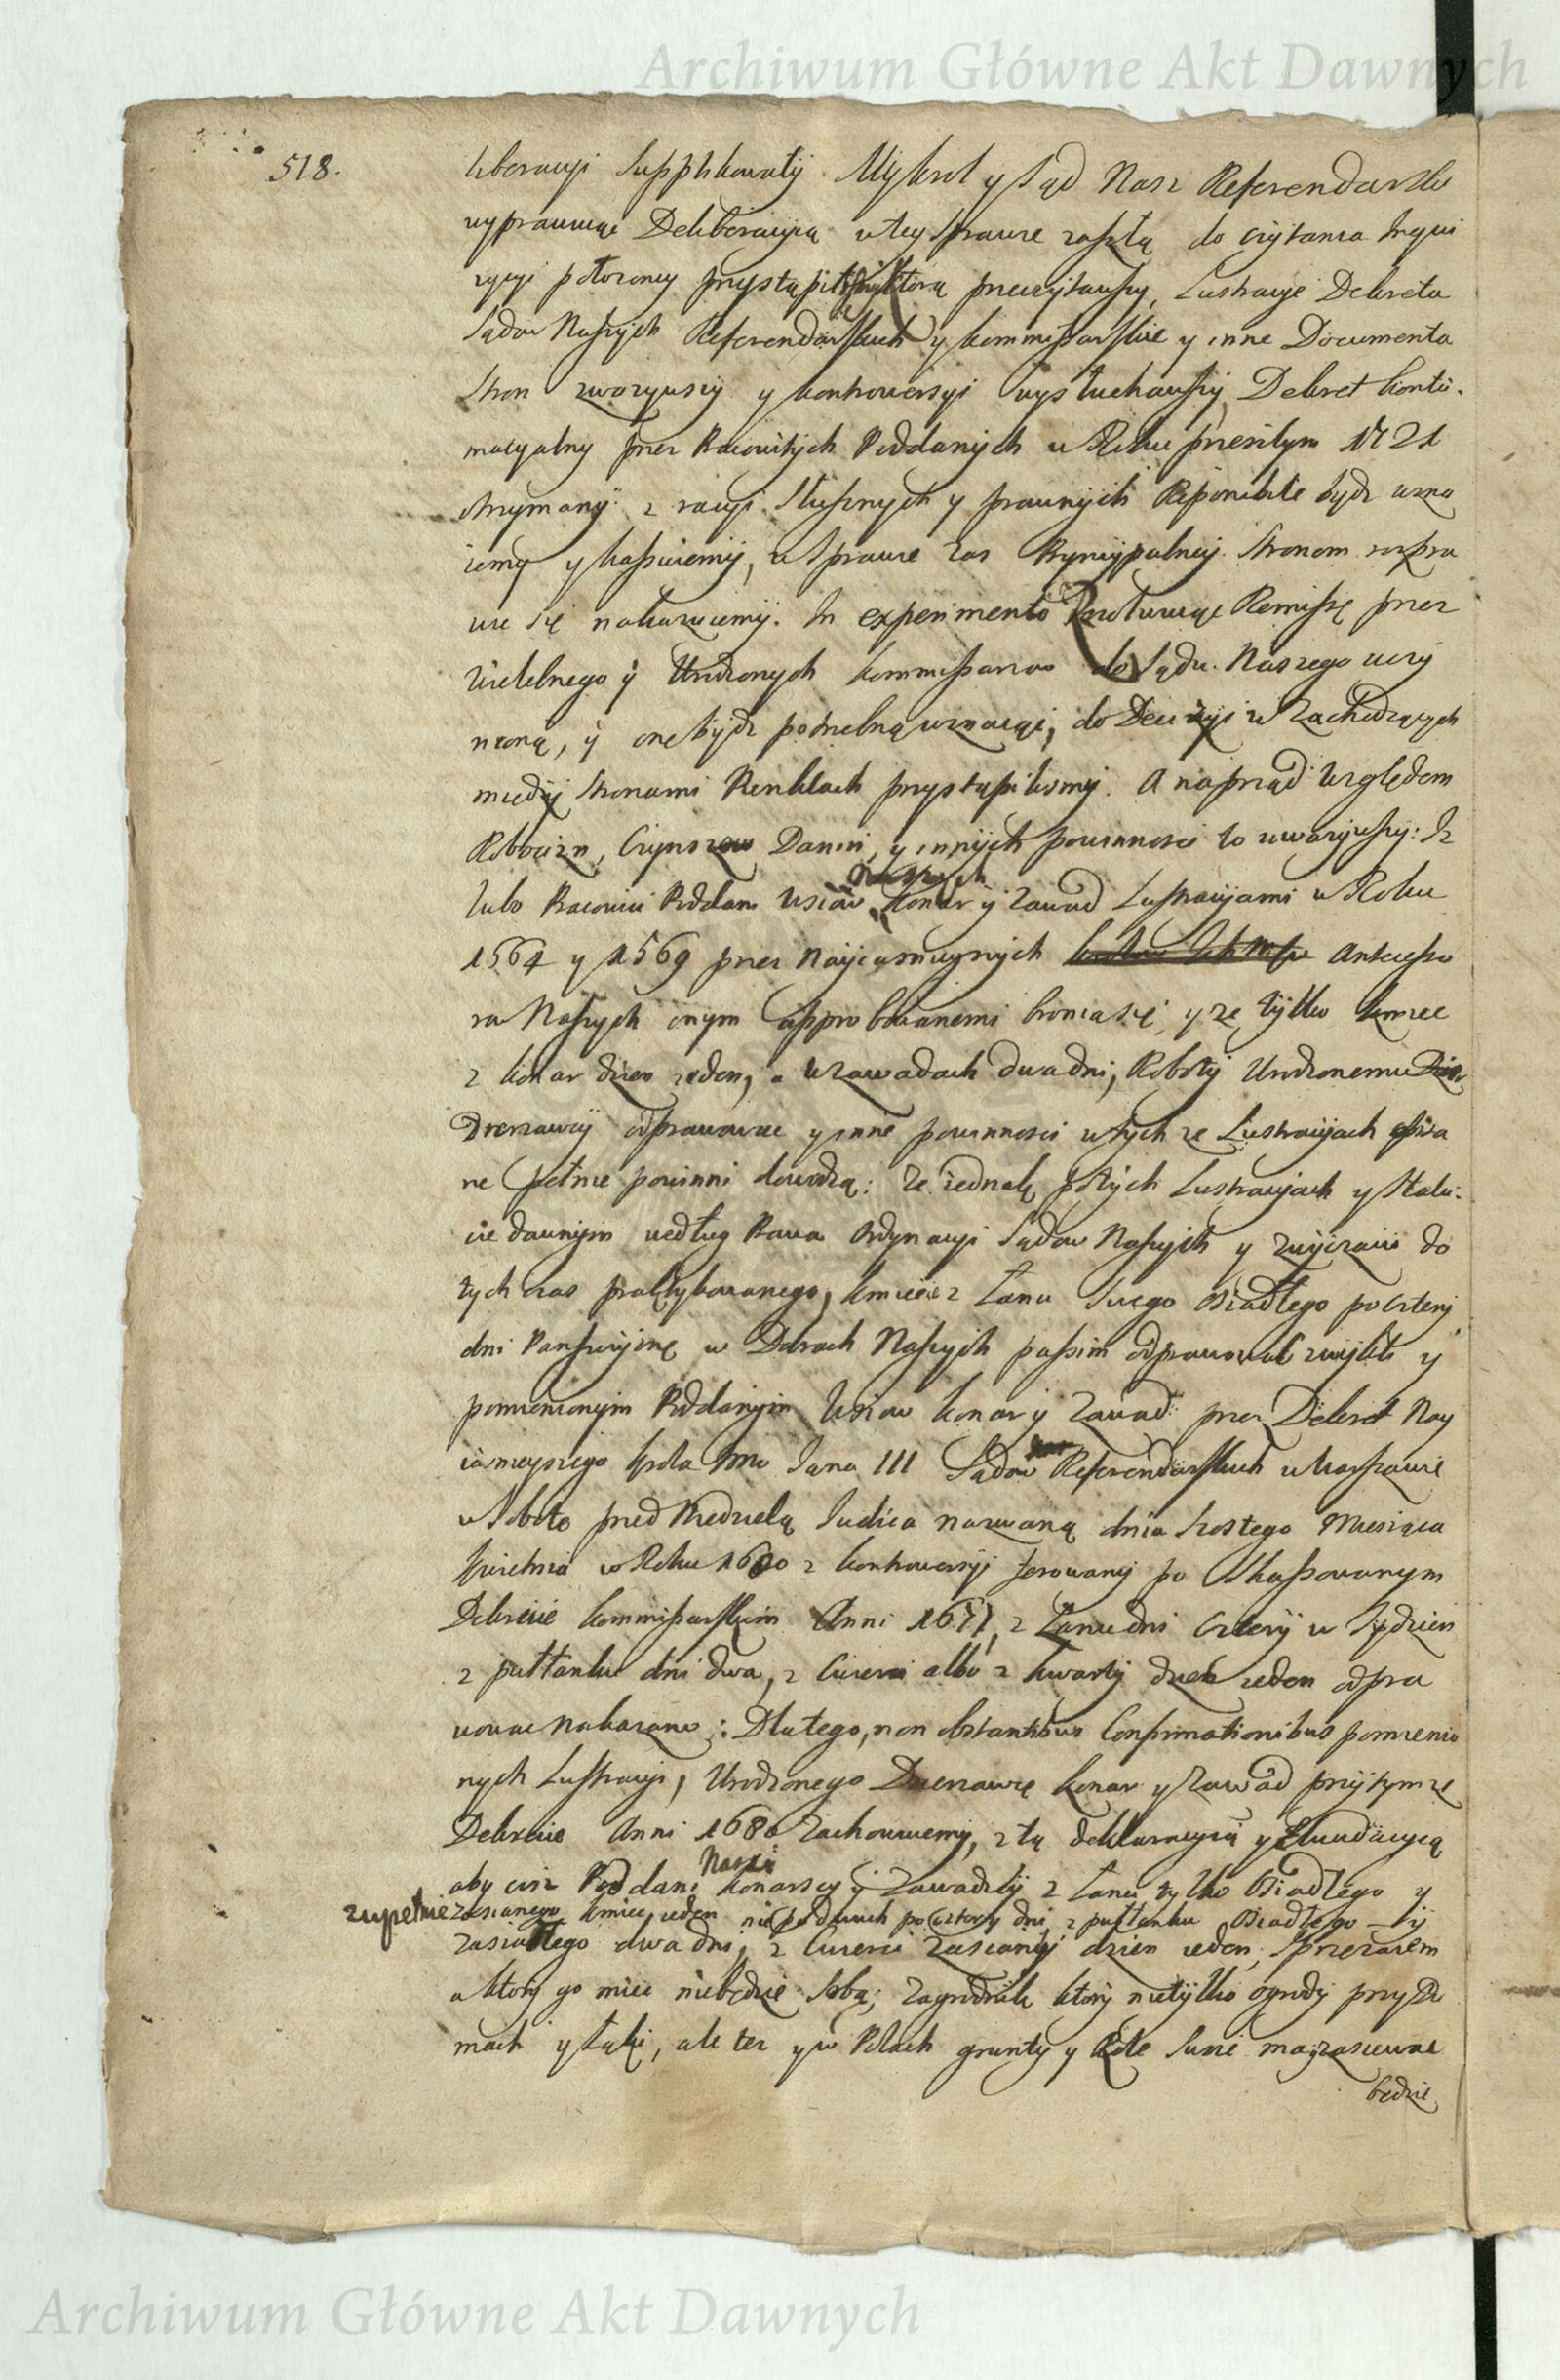 Archiwum Główne Akt Dawnych
518.
liberacyi supplikowały. My Krol y Sąd Nasz Referendarski
wyprawuiąc Deliberacyią w tey sprawie zaszłą do czytania Inqui
zycyi położoney przystąpił ktorą przeczytawszy, Lustracye Dekreta
Sądow Naszych Referendarskich y kommissarskie y inne Documenta
stron zwazywszy y kontrowersyi wysłuchawszy, Dekret kontu-
macyalny przez Pracowitych Poddanych w Roku przeszłym 1721
otrzymany z racyi słusznych y prawnych Reponibile bydz uzna
iemy y kassuiemy, w sprawie zas Pryncypalney stronom rozpra
wic się nakazuiemy. In experimento Remissę przez
Wielebnego y Urodzonych kommissarzow do Sądu Naszego uczy
nioną, y onę bydz potrzebną uznaiąc, do Decyzyi w zachodzących
między stronami Punktach przystąpilismy. A naprzod względem
Robocizn, Czynszow Danin, y innych powinnosci to uwazywszy: Iz
lubo Pracowici Poddani wsiow Naszych Konar y Zawad Lustracyiami w Roku
1564 y 1569 przez Nayiasnieyszych Antecesso
row Naszych onym approbowanemi bronią się, y ze tylko kmiec
z Konar dzien ieden, a w Zawadach dwa dni, Roboty Urodzonemu
Dzierzawcy odprawowac y inne powinnosci w tych ze Lustracyiach opisa
ne pełnic powinni dowodzą: ze iednak po tych Lustracyiach y Statu-
cie dawnym według Prawa Ordynacyi Sądow Naszych y zwyczaiu do
tych czas praktykowanego, kmiec z Łanu swego osiadłego po cztery
dni Panszczyznę w Dobrach Naszych passim odprawowac zwykli y
pomienionym Poddanym wsiow Konar y Zawad przez Dekret Nay
iasnieyszego Krola Jmci Jana III Sądow Referendarskich w Warszawie
w Sobotę przed Niedzielą Judica nazwaną dnia szostego Miesiąca
kwietnia w Roku 1680 z kontrowersyi ferowany po skassowanym
Dekrecie kommissarskim Anni 1677, z Łanu dni cztery w tydzien
z pułłanku dni dwa, z cwierci albo z kwarty dzien ieden odpra
wowac nakazano: Dlatego, non obstantibus Confirmationibus pomienio
nych Lustracyi, Urodzonego Dzierzawcę Konar y Zawad przy tymze
Dekrecie Anni 1680 zachowuiemy, z tą deklaracyią y Elucidacyią
aby ciz Poddani Nasi Konarscy y Zawadzcy z Łanu tylko osiadłego y
zupełnie zasianego kmiec ieden nie po dwuch po cztery dni, z pułłanku osiadłego y
zasiadłego dwa dni, z cwierci zasianey dzien ieden, sprzęzaiem
a ktory go miec niebędzie sobą; zagrodnik ktory nietylko ogrody przy Do
mach y Łąki, ale tez y w Polach grunty y Role swoie ma zasiewac
będzie
Archiwum Główne Akt Dawnych